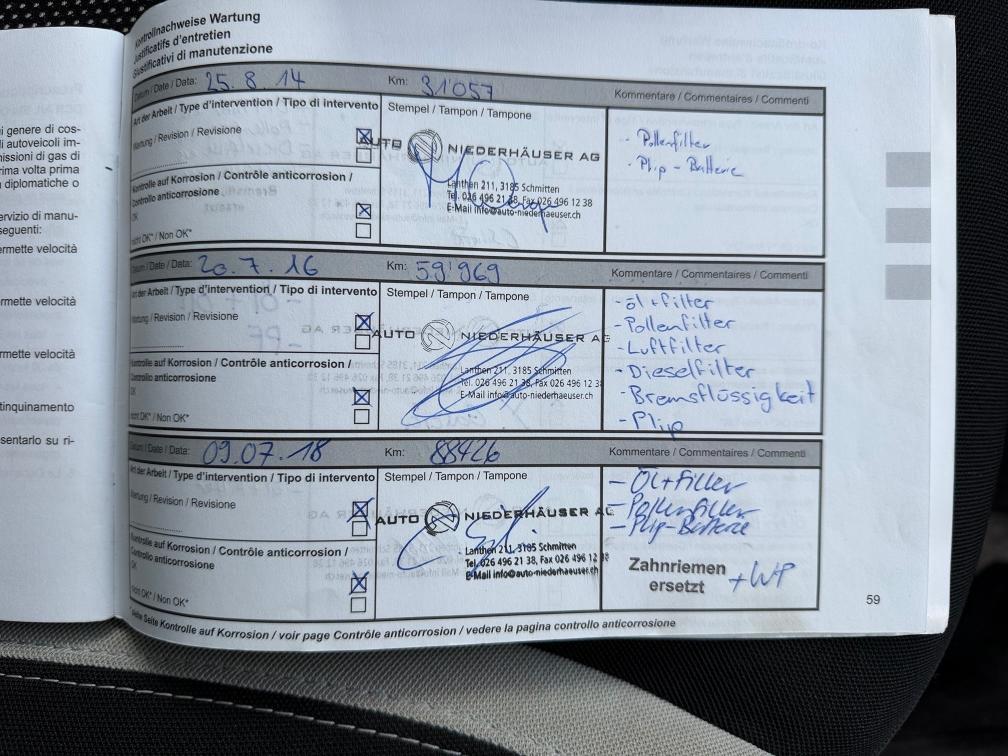 Kontrollnachweise Wartung
Justificatifs d'entretien
Giustificativi di manutenzione
Datum / Date / Data: 25.8.14 Km: 31'057 Kommentare / Commentaires / Commenti
Art der Arbeit / Type d'intervention / Tipo di intervento
Stempel / Tampon / Tampone
Wartung / Revision / Revisione
AUTO NIEDERHÄUSER AG
Lanthen 211, 3185 Schmitten
Tel. 026 496 21 38, Fax 026 496 12 38
E-Mail info@auto-niederhaeuser.ch
- Pollenfilter
- Plip - Batterie
Kontrolle auf Korrosion / Contrôle anticorrosion /
Controllo anticorrosione
OK
nicht OK* / Non OK*
Datum / Date / Data: 20.7.16 Km: 59'969 Kommentare / Commentaires / Commenti
Art der Arbeit / Type d'intervention / Tipo di intervento
Stempel / Tampon / Tampone
Wartung / Revision / Revisione
AUTO NIEDERHÄUSER AG
Lanthen 211, 3185 Schmitten
Tel. 026 496 21 38, Fax 026 496 12 3
E-Mail info@auto-niederhaeuser.ch
- öl + filter
- Pollenfilter
- Luftfilter
- Dieselfilter
- Bremsflüssigkeit
- Plip
Kontrolle auf Korrosion / Contrôle anticorrosion /
Controllo anticorrosione
OK
nicht OK* / Non OK*
Datum / Date / Data: 09.07.18 Km: 88426 Kommentare / Commentaires / Commenti
Art der Arbeit / Type d'intervention / Tipo di intervento
Stempel / Tampon / Tampone
Wartung / Revision / Revisione
AUTO NIEDERHÄUSER AG
Lanthen 211, 3185 Schmitten
Tel. 026 496 21 38, Fax 026 496 12 38
E-Mail info@auto-niederhaeuser.ch
- Öl + Filter
- Pollenfilter
- Plip-Batterie
Zahnriemen
ersetzt + WP
Kontrolle auf Korrosion / Contrôle anticorrosion /
Controllo anticorrosione
OK
nicht OK* / Non OK*
* siehe Seite Kontrolle auf Korrosion / voir page Contrôle anticorrosion / vedere la pagina controllo anticorrosione
59
i genere di cos-
li autoveicoli im-
issioni di gas di
rima volta prima
diplomatiche o
ervizio di manu-
seguenti:
ermette velocità
rmette velocità
rmette velocità
tinquinamento
sentarlo su ri-